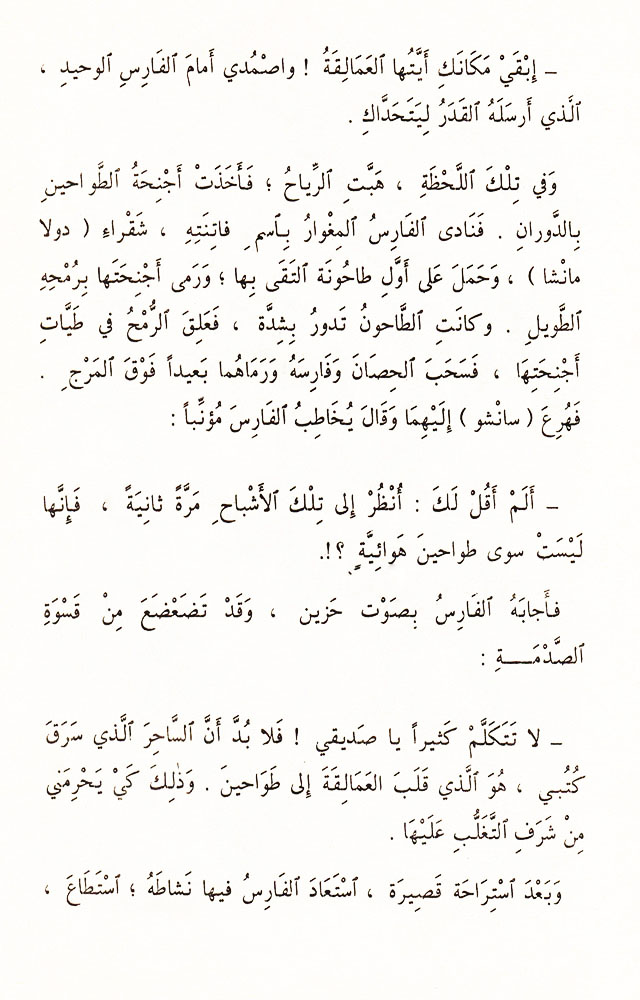 ـ إِبْقَيْ مَكَانَكِ أَيَّتُها العَمَالِقَةُ ! واصْمُدي أَمامَ ٱلفَارِسِ ٱلوحيدِ ،
ٱلَّذي أَرسَلَهُ ٱلقَدَرُ لِيَتَحَدَّاكِ .
وَفي تِلْكَ ٱللَّحْظَةِ ، هَبَّتِ ٱلرِّياحُ ؛ فَأَخَذَتْ أَجْنِحَةُ ٱلطَّواحينِ
بِالدَّورانِ . فَنَادى ٱلفَارِسُ ٱلمِغْوارُ بِٱسمِ فاتِنَتِهِ ، شَقْراءِ ( دولا
مانْشا ) ، وَحَمَلَ عَلى أَوَّلِ طاحُونَة ٱلتَقَى بِها ؛ وَرَمى أَجْنِحَتَها بِرُمْحِهِ
ٱلطَّويلِ . وكانَتِ ٱلطَّاحونُ تَدورُ بِشِدَّة ، فَعَلِقَ ٱلرُّمْحُ في طَيَّاتِ
أَجْنِحَتِهَا ، فَسَحَبَ ٱلحِصَانَ وَفَارِسَهُ وَرَمَاهُما بَعيداً فَوْقَ ٱلمَرْجِ .
فَهُرِعَ ( سانْشو ) إِلَيْهِمَا وَقَالَ يُخَاطِبُ ٱلفَارِسَ مُؤنِّباً :
ـ أَلَمْ أَقُلْ لَكَ : أُنْظُرْ إِلى تِلْكَ ٱلأَشْباحِ مَرَّةً ثانِيَةً ، فَإِنَّها
لَيْسَتْ سوى طواحينَ هَوائِيَّةٍ ؟!.
فأَجابَهُ ٱلفَارِسُ بِصَوْت حَزين ، وَقَدْ تَضَعْضَعَ مِنْ قَسْوَةِ
ٱلصَّدْمَــــةِ :
ـ لا تَتَكَلَّمْ كَثيراً يا صَديقي ! فَلا بُدَّ أَنَّ ٱلسَّاحِرَ ٱلَّذي سَرَقَ
كُتُبي ، هُوَ ٱلَّذي قَلَبَ العَمَالِقَةَ إِلى طَوَاحينَ . وَذٰلِكَ كَيْ يَحْرِمَني
مِنْ شَرَفِ ٱلتَّغَلُّبِ عَلَيْهَا .
وَبَعْدَ ٱسْتِرَاحَة قَصِيرَة ، ٱسْتَعَادَ ٱلفَارِسُ فيها نَشاطَهُ ؛ ٱسْتَطَاعَ ،